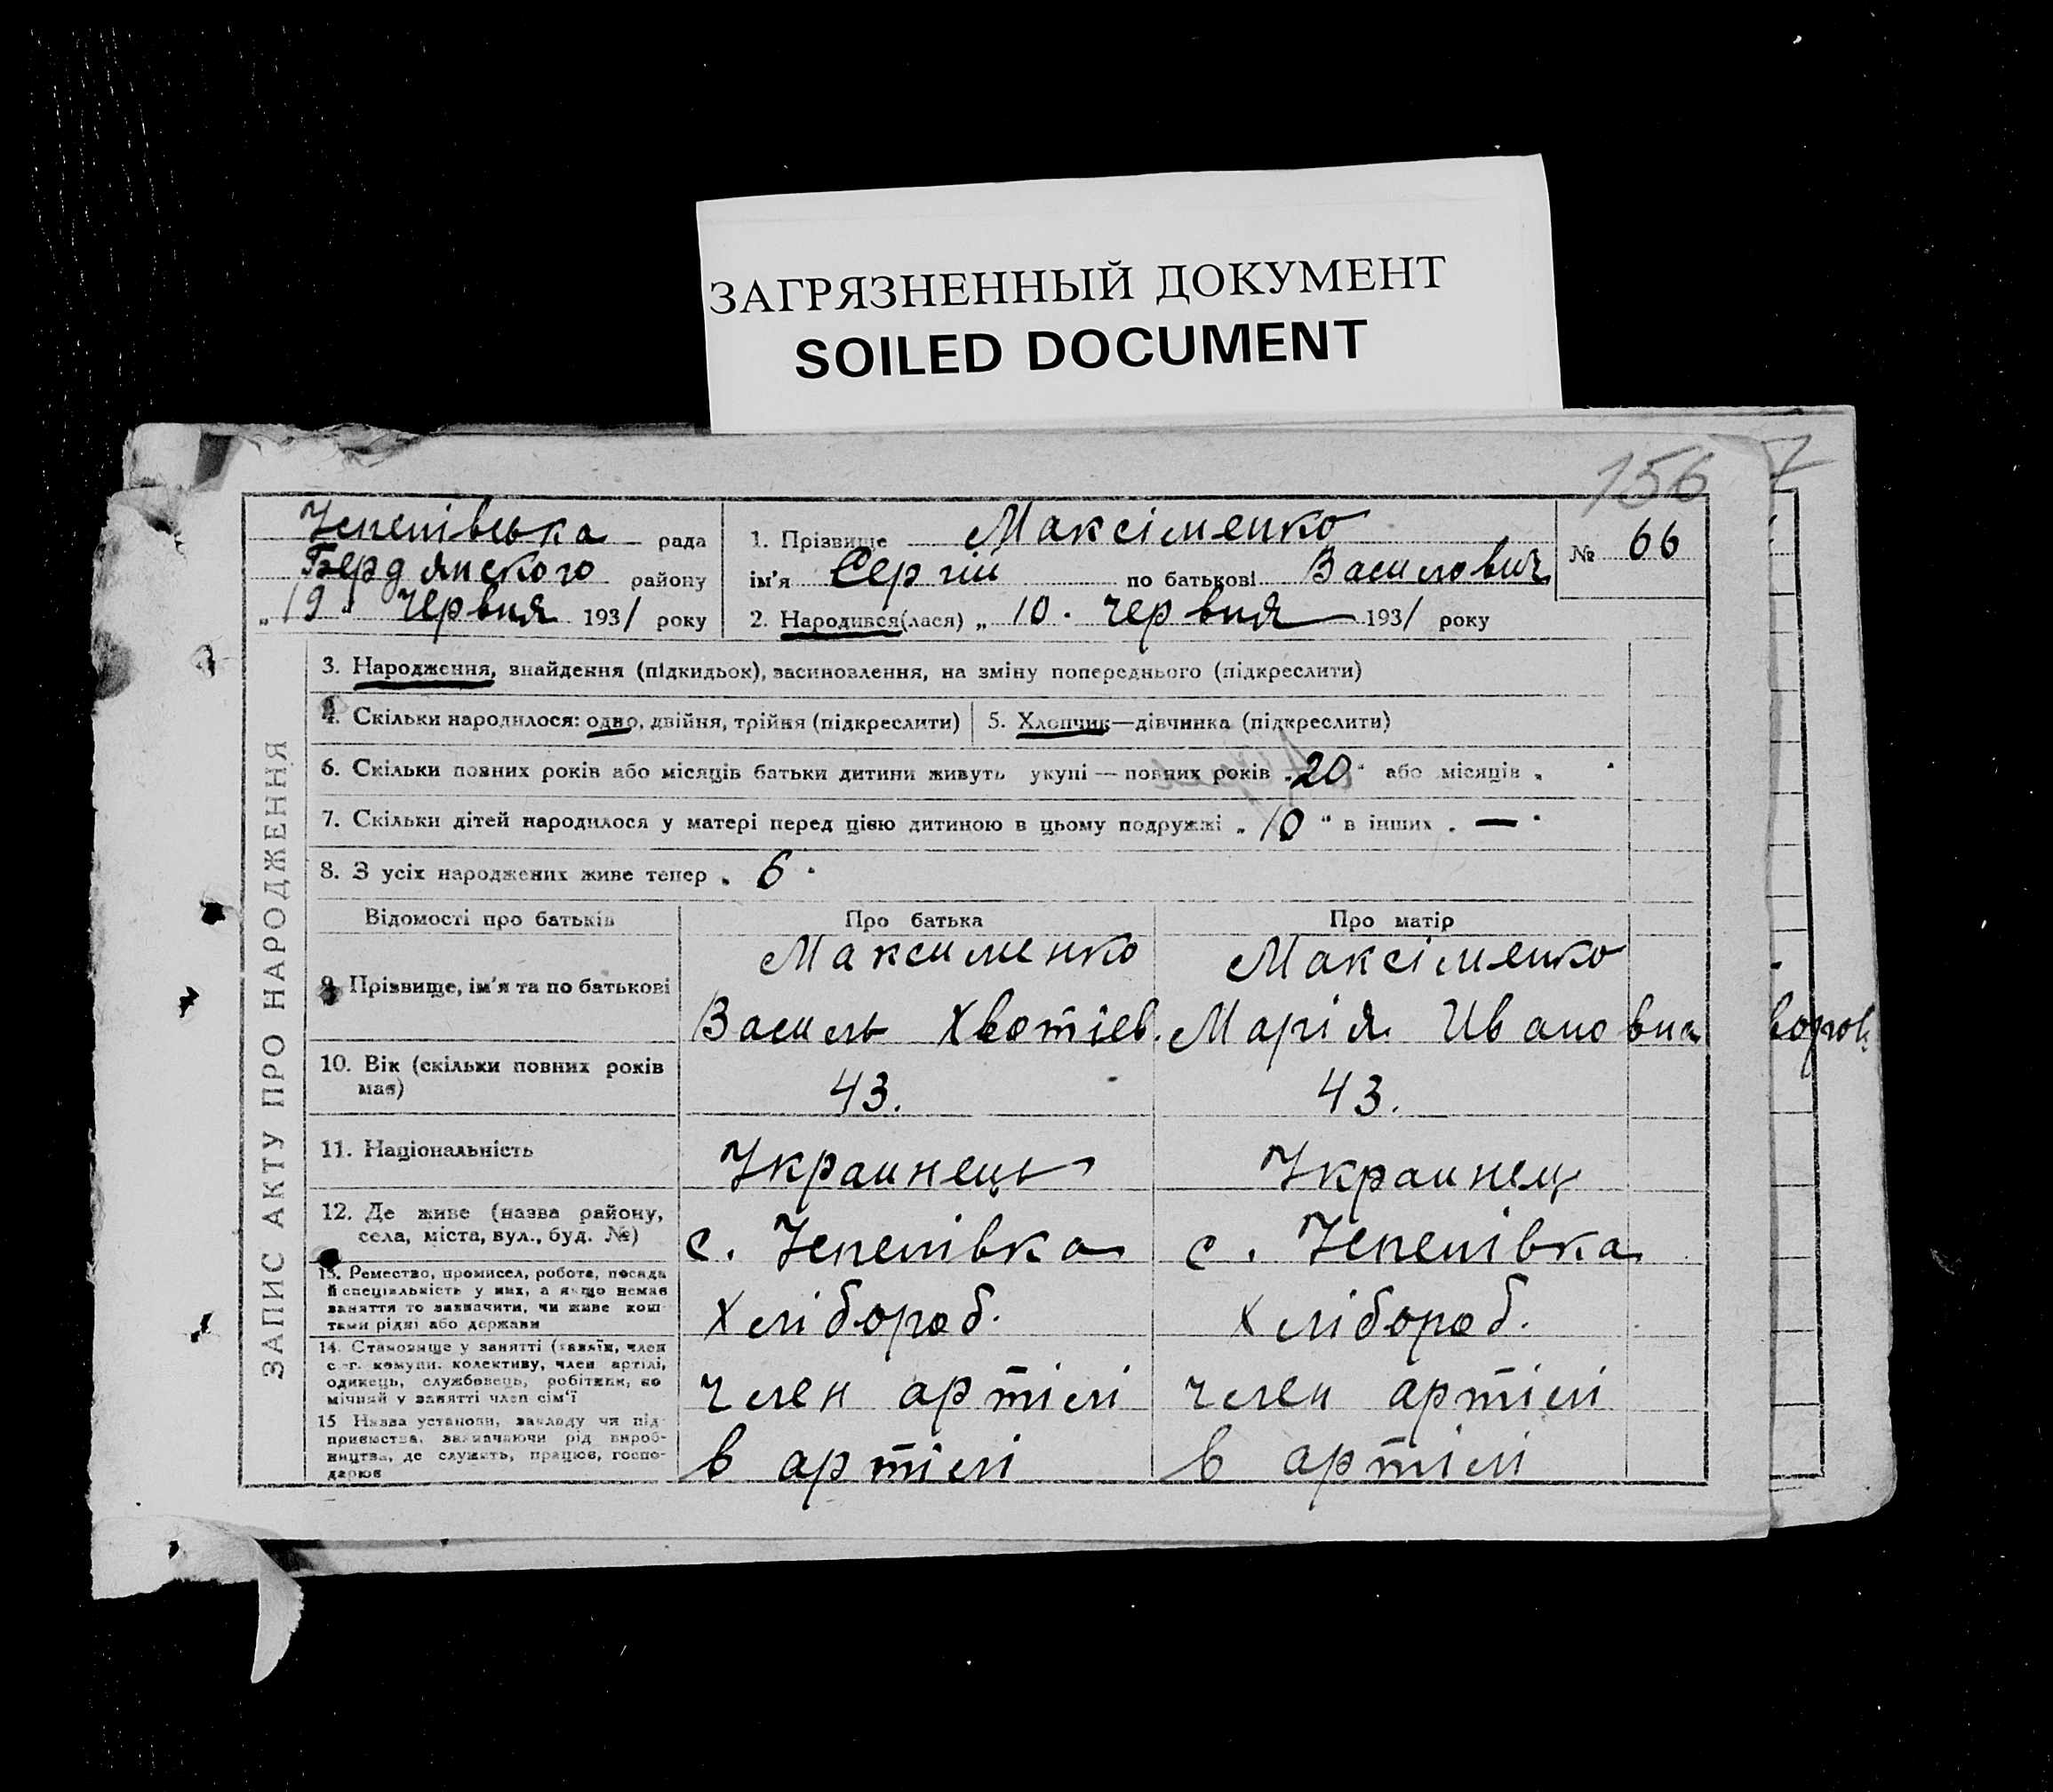 ЗАГРЯЗНЕННЫЙ ДОКУМЕНТ
SOILED DOCUMENT
156 7
рада
Бердянского району
„19„ червня 1931 року
1. Прізвище Максіменко
ім'я Сергій по батькові Василович
2. Народився(лася) „ 10. червня 1931 року
№ 66
ЗАПИС АКТУ ПРО НАРОДЖЕННЯ
3. Народження, знайдення (підкидьок), засиновлення, на зміну попереднього (підкреслити)
4. Скільки народилося: одно, двійня, трійня (підкреслити)
5. Хлопчик—дівчинка (підкреслити)
6. Скільки повних років або місяців батьки дитини живуть укупі — повних років „20" або місяців „
7. Скільки дітей народилося у матері перед цією дитиною в цьому подружжі „10" в інших „—"
8. З усіх народжених живе тепер „ 6 "
Відомості про батьків
Про батька
Про матір
9. Прізвище, ім'я та по батькові
Максименко
Василь Хвотіев.
Максіменко
Марія Ивановна
10. Вік (скільки повних років
має)
43.
43.
11. Національність
Украинець
Украинец
12. Де живе (назва району,
села, міста, вул., буд. №)
с.
с.
13. Ремество, промисел, робота, посада
й спеціяльність у них, а якщо немає
заняття то зазначити, чи живе кош-
тами рідні або держави
Хлібороб.
Хлібороб.
14. Становище у занятті (хазяїн, член
с.-г. комуни, колективу, член артілі,
одинець, службовець, робітник, по
мічний у занятті член сім'ї
член артілі
член артілі
15 Назва установи, закладу чи під-
приємства, зазначаючи рід вироб-
ництва, де служить, працює, госпо-
дарює
в артілі
в артілі